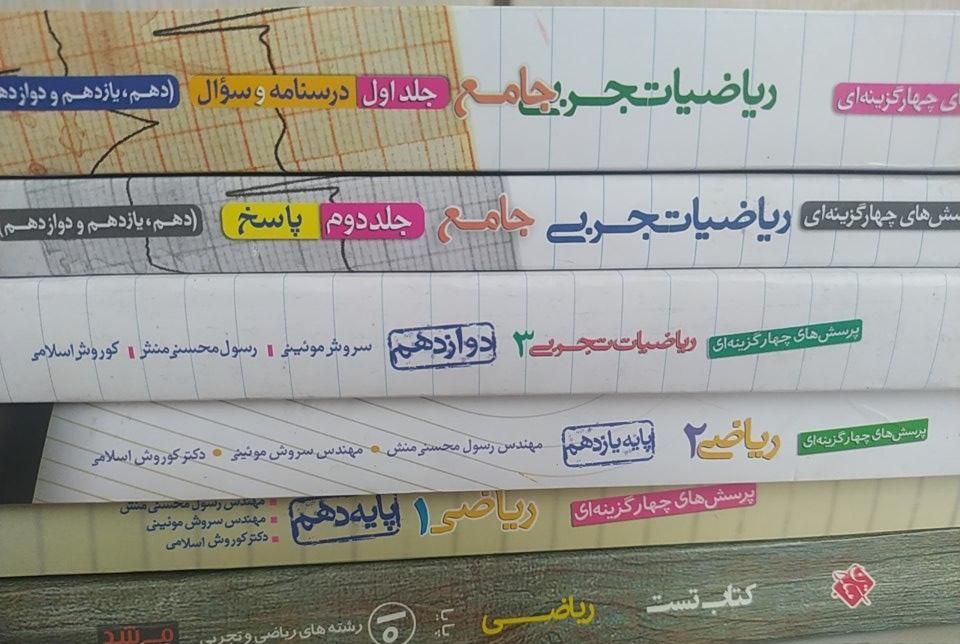 چهارگزینه‌ای ریاضیات تجربی جامع جلد اول درسنامه و سؤال (دهم، یازدهم و دوازدهم
پرسش‌های چهارگزینه‌ای ریاضیات تجربی جامع جلد دوم پاسخ (دهم، یازدهم و دوازدهم)
پرسش‌های چهارگزینه‌ای ریاضیات تجربی ۳ دوازدهم سروش موئینی رسول محسنی منش کوروش اسلامی
پرسش‌های چهارگزینه‌ای ریاضی ۲ پایه یازدهم مهندس رسول محسنی منش • مهندس سروش موئینی • دکتر کوروش اسلامی
پرسش‌های چهارگزینه‌ای ریاضی ۱ پایه دهم
مهندس رسول محسنی منش
مهندس سروش موئینی
دکتر کوروش اسلامی
کتاب تست ریاضی پایه ۱۰ رشته های ریاضی و تجربی